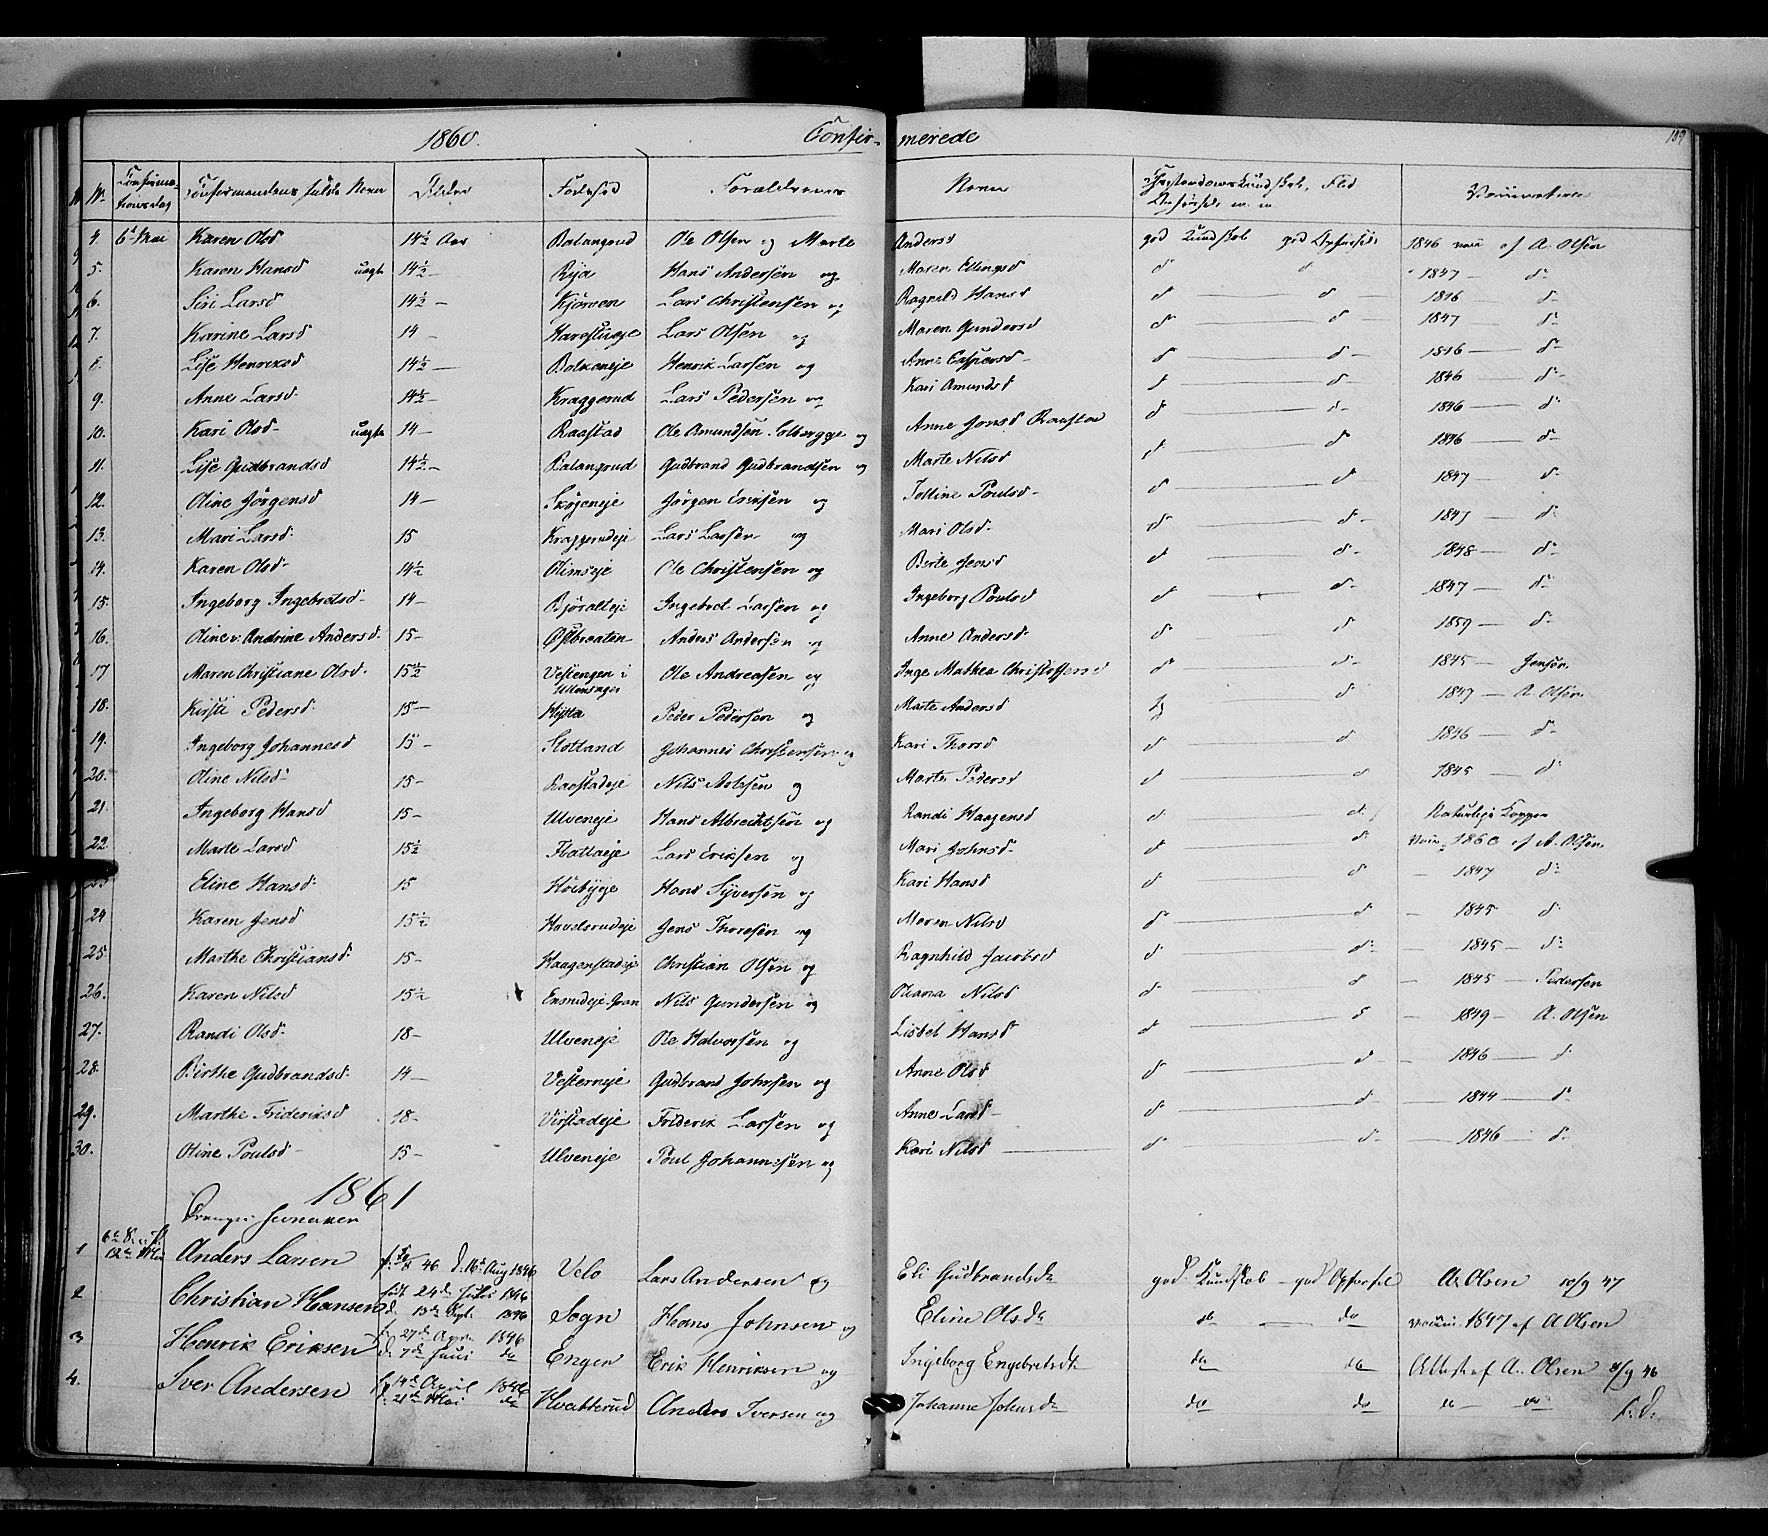 1860. Confirmerede 189
Nr. Confirmationsdag Confirmandens fulde Navn Alder Fødested Forældrenes Navn Christendomskundskab, Flid Opførsel m. m. Vaccinerte
4. 6te Mai Karen Olsd 14½ Aar Balangrud Ole Olsen og Marte Andersd god Kundskab god Opførsel 1846 vacc af A. Olsen
5. Karen Hansd uægte 14½ Rya Hans Andersen og Maren Ellingsd d d 1847 d
6. Siri Larsd 14½ Kjørven Lars Christensen og Ragnild Hansd d d 1846 d
7. Karine Larsd 14 Harestueje Lars Olsen og Maren Gundersd d d 1847 d
8. Lise Henriksd 14½ Henrik Larsen og Anne Caspersd d d 1846 d
9. Anne Larsd 14½ Kraggerud Lars Pedersen og Kari Amundsd d d 1846 d
10. Kari Olsd uægte 14 Raastad Ole Amundsen og Anne Jonsd Raastad d d 1846 d
11. Lise Gudbrandsd 14½ Balangrud Gudbrand Gudbrandsen og Marte Nilsd d d 1846 d
12. Oline Jörgensd 14 Skögeneje Jörgen Eriksen og Poulsd d d 1847 d
13. Mari Larsd 15 Kraggerudeje Lars Larsen og Mari Olsd d d 1847 d
14. Karen Olsd 14½ Olimseje Ole Christensen og Berte Jensd d d 1848 d
15. Ingeborg Ingebretsd 14 Björalteje Ingebret Larsen og Ingeborg Poulsd d d 1847 d
16. Oline v. Andrine Andersd 15 Østbraaten Anders Andersen og Anne Andersd d d 1859 d
17 Maren Christiane Olsd 15½ Vestengen i Ullensager Ole Andreasen og Inge Mathea Christoffersd d d 1845 Jensen
18. Kirsti Pedersd 15 Peder Pedersen og Marte Andersd d 1847 A. Olsen
19. Ingeborg Johannesd 15 Slotland Johannes Christensen og Kari Thorsd d d 1846 d
20. Oline Nilsd 15 Raastadeje Nils og Marte Pedersd d d 1845 d
21. Ingeborg Hansd 15 Ulveneje Hans Albrechtsen og Randi Haagensd d d Naturlige Kopper
22. Marte Larsd 15½ Flattaeje Lars Eriksen og Mari Johnsd d d Vacc. 1860 af A. Olsen
23 Eline Hansd 15 Höibyeje Hans Syversen og Kari Hansd d d 1847 d
24 Karen Jensd 15½ Hovelsrudeje Jens Thoresen og Maren Nilsd d d 1845 d
25. Marthe Christiansd 15 Haagenstadeje Christian Olsen og Ragnhild Jacobsd d d 1845 d
26. Karen Nilsd 15½ Gran Nils Gundersen og Oliana Nilsd d d 1845 Pedersen
27. Randi Olsd 18 Ulveneje Ole Halvorsen og Lisbet Hansd d d 1849 A. Olsen
28. Birthe Gudbrandsd 14 Vesterneje Gudbrand Johnsen og Anne Olsd d d 1846 d
29. Marthe Frideriksd 18 Virstadeje Friderik Larsen og Anne Larsd d d 1844 d
30. Oline Poulsd 15 Ulveneje Poul Johannesen og Kari Nilsd d d 1846 d
1861
Drenger Jevnaker
1 12te Mai Anders Larsen 46 d. 16de Aug 1846 Velo Lars Andersen og Eli Gudbrandsdr god Kundskab - god Opførsel A. Olsen 10/9 47
2 Christian Hansen født 24de Juli 1846 d. 13de Sept. 1846 Sogn Hans Johnsen og Eline Olsdr do do vaccin. 1847 af A Olsen
3 Henrik Eriksen f. 27de Apr. 1846 d. 7de Juni do Engen Erik Henriksen og Ingeborg Engebretsdr do do Attest af A. Olsen 8/9 46
4. Iver Andersen f. 14de April 1846 d. 21de Mai do Hvattterud Anders Iversen og Johanne Johnsdr do do do do s. D.